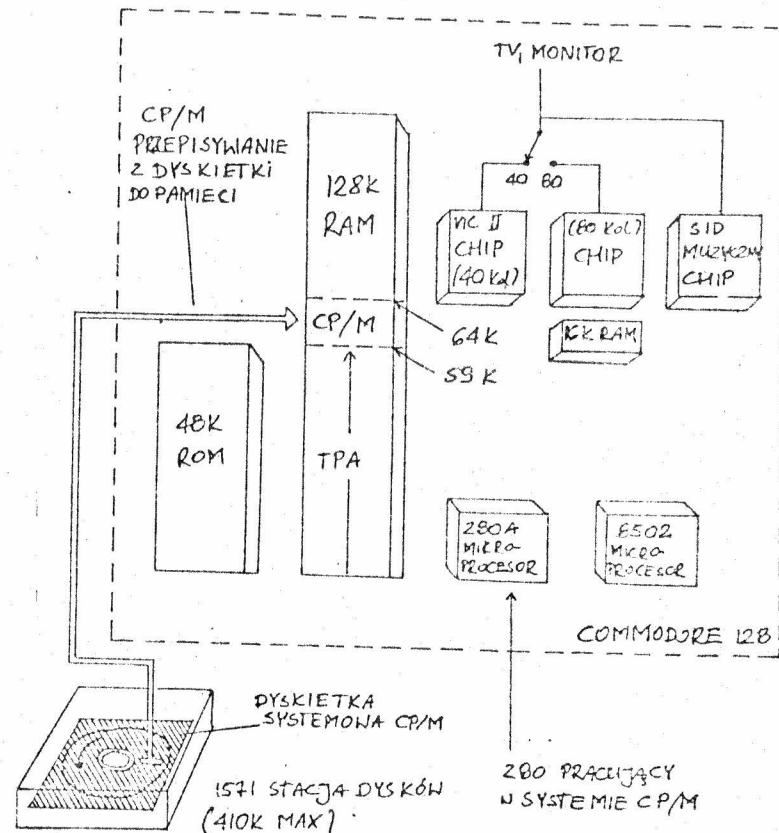 TV, MONITOR
CP/M
PRZEPISYWANIE
Z DYSKIETKI
DO PAMIECI
128K
RAM
40 80
VIC II
CHIP
(40 Kol)
(80 KOL)
CHIP
SID
MUZYCZNY
CHIP
16K RAM
CP/M
64K
59K
48K
ROM
TPA
Z80A
MIKRO
PROCESOR
8502
MICRO
PROCESOR
COMMODORE 128
DYSKIETKA
SYSTEMOWA CP/M
1571 STACJA DYSKÓW
(410K MAX)
Z80 PRACUJĄCY
W SYSTEMIE CP/M